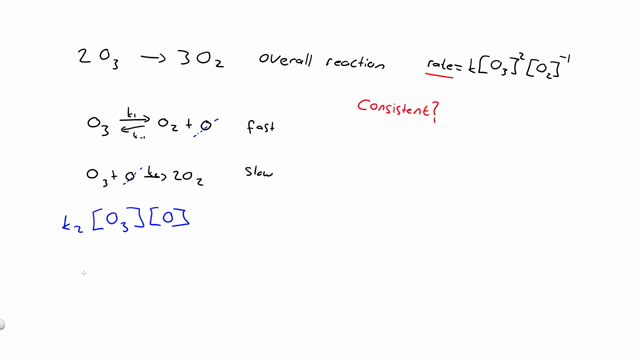 2O₃ → 3O₂ overall reaction rate = k[O₃]²[O₂]⁻¹
Consistent?
O₃ ⇌ O₂ + O fast
k₁
k₋₁
O₃ + O → 2O₂ slow
k₂
k₂[O₃][O]